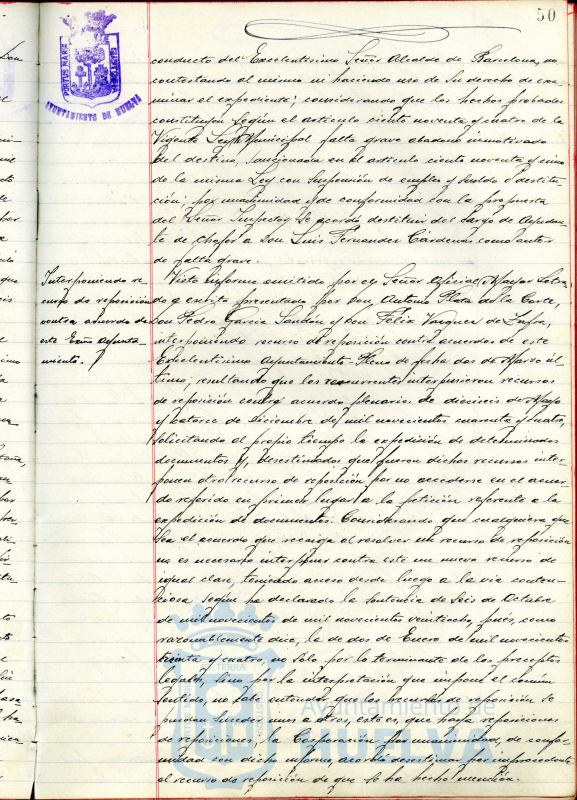 50
PORTUS MARIS
AYUNTAMIENTO DE HUELVA
conducto del Excelentisimo Señor Alcalde de Barcelona, no
contestando el mismo ni haciendo uso de su derecho de exa-
minar el expediente; considerando que los hechos probados
constituyen según el articulo ciento noventa y cuatro de la
Vigente Ley Municipal falta grave abandono inmotivado
del destino, sancionada en el articulo ciento noventa y cinco
de la misma Ley con suspensión de empleo y sueldo o destitu-
ción; por unanimidad y de conformidad con la propuesta
del Señor Inspector se acordó destituir del cargo de Ayudan-
te de Chofer a Don Luis Fernandez Cárdenas como autor
de falta grave.
Interponiendo re-
curso de reposición
contra acuerdo de
este Exmo Ayunta-
miento.
Visto informe emitido por el Señor Oficial Mayor Letra-
do y escrito presentado por Don Antonio Plata de la Corte,
Don Pedro Garcia Sandin y Don Felix Vazquez de Zafra,
interponiendo recurso de reposición contra acuerdos de este
Excelentisimo Ayuntamiento Pleno de fecha dos de Marzo úl-
timo; resultando que los recurrentes interpusieron recursos
de reposición contra acuerdo plenarios de dieciseis de Mayo
y catorce de Diciembre de mil novecientos cuarenta y cuatro,
solicitando al propio tiempo la expedición de determinados
documentos y, desestimados que fueron dichos recursos inter-
ponen otro recurso de reposición por no accederse en el acuer-
do referido en primer lugar a la petición referente a la
expedición de documentos. Considerando que cualquiera que
sea el acuerdo que recaiga al resolver un recurso de reposición
no es necesario interponer contra este un nuevo recurso de
igual clase, teniendo acceso desde luego a la via conten-
ciosa segun ha declarado la sentencia de seis de Octubre
de mil novecientos de mil novecientos veintiocho, pues, como
razonablemente dice, la de dos de Enero de mil novecientos
treinta y cuatro, no solo por lo terminante de los preceptos
legales, sino por la interpretación que impone el comun
sentido, no cabe entender que los recursos de reposición se
puedan suceder unos a otros, esto es, que haya reposiciones
de reposiciones; la Corporación por unanimidad, de confor-
midad con dicho informe, acordó desestimar por improcedente
el recurso de reposición de que se ha hecho mención.
Ayuntamiento de
HUELVA